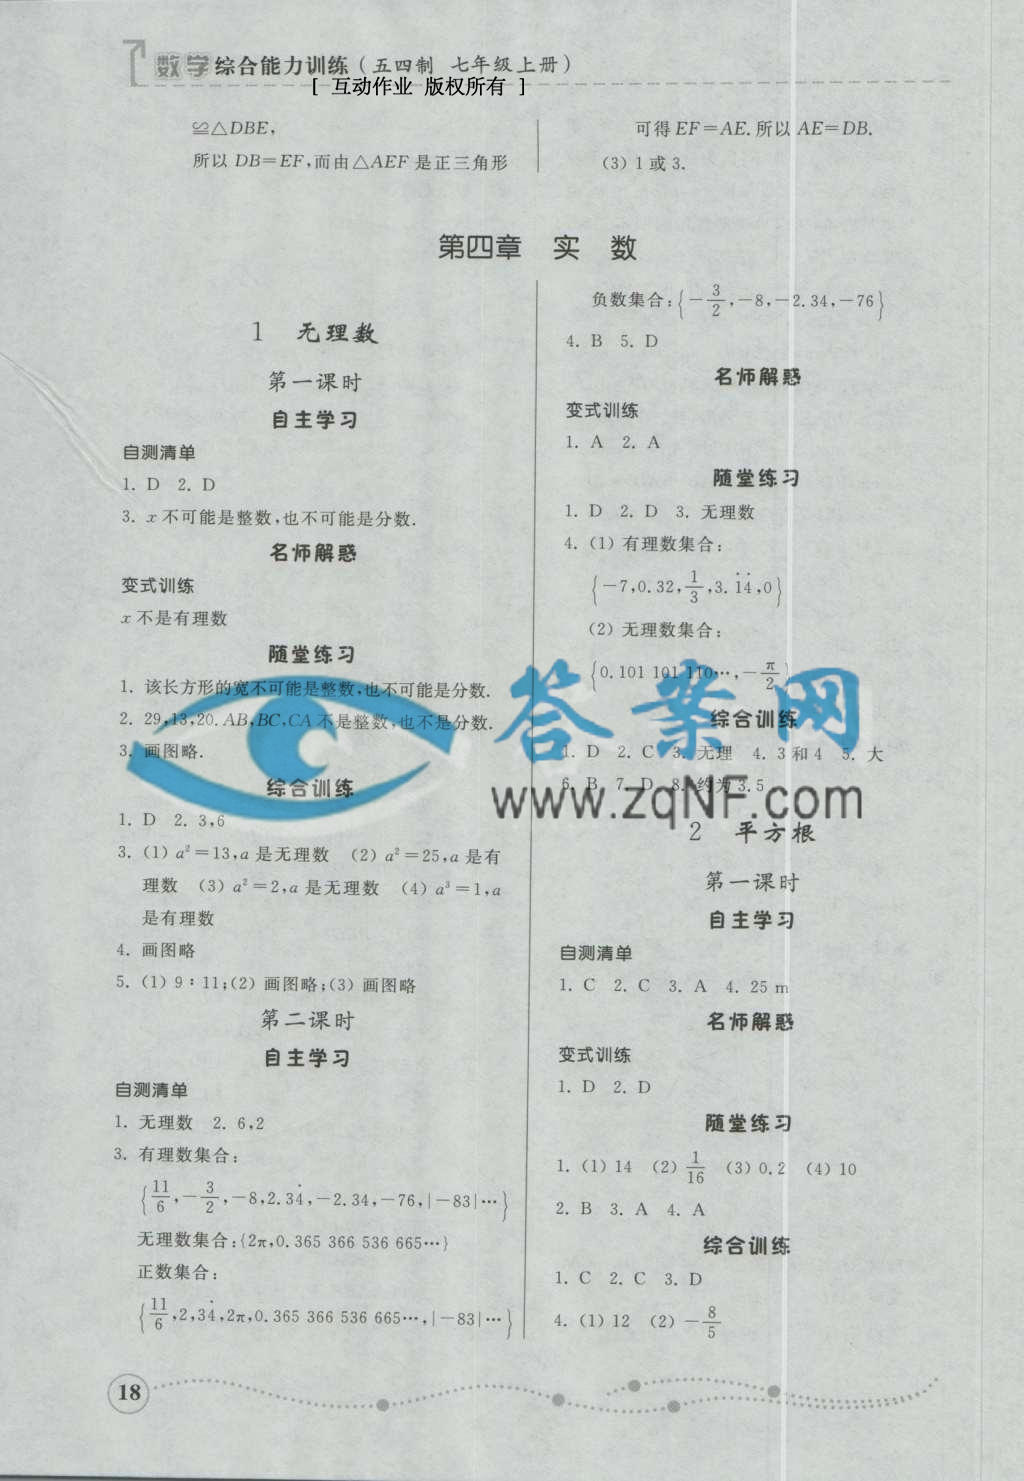 数学综合能力训练(五四制 七年级上册)
[ 互动作业 版权所有 ]
≌△DBE,
所以 DB=EF,而由△AEF 是正三角形
可得 EF=AE.所以 AE=DB.
(3) 1 或 3.
第四章 实 数
1 无理数
第一课时
自主学习
自测清单
1. D 2. D
3. x 不可能是整数,也不可能是分数.
名师解惑
变式训练
x 不是有理数
随堂练习
1. 该长方形的宽不可能是整数,也不可能是分数.
2. 29,13,20. AB,BC,CA 不是整数,也不是分数.
3. 画图略.
综合训练
1. D 2. 3,6
3. (1) a²=13,a 是无理数 (2) a²=25,a 是有
理数 (3) a²=2,a 是无理数 (4) a³=1,a
是有理数
4. 画图略
5. (1) 9∶11;(2) 画图略;(3) 画图略
第二课时
自主学习
自测清单
1. 无理数 2. 6,2
3. 有理数集合:
{11/6,-3/2,-8,2.34̇,-2.34,-76,|-83|…}
无理数集合:{2π,0.365 366 536 665…}
正数集合:
{11/6,2,34̇,2π,0.365 366 536 665…,|-83|…}
负数集合:{-3/2,-8,-2.34,-76}
4. B 5. D
名师解惑
变式训练
1. A 2. A
随堂练习
1. D 2. D 3. 无理数
4. (1) 有理数集合:
{-7,0.32,1/3,3.1̇4̇,0}
(2) 无理数集合:
{0.101 101 110…,-π/2}
综合训练
1. D 2. C 3. 无理 4. 3 和 4 5. 大
6. B 7. D 8. 约为 3.5
2 平方根
第一课时
自主学习
自测清单
1. C 2. C 3. A 4. 25 m
名师解惑
变式训练
1. D 2. D
随堂练习
1. (1) 14 (2) 1/16 (3) 0.2 (4) 10
2. B 3. A 4. A
综合训练
1. C 2. C 3. D
4. (1) 12 (2) -8/5
18
答案网
www.zqNF.com